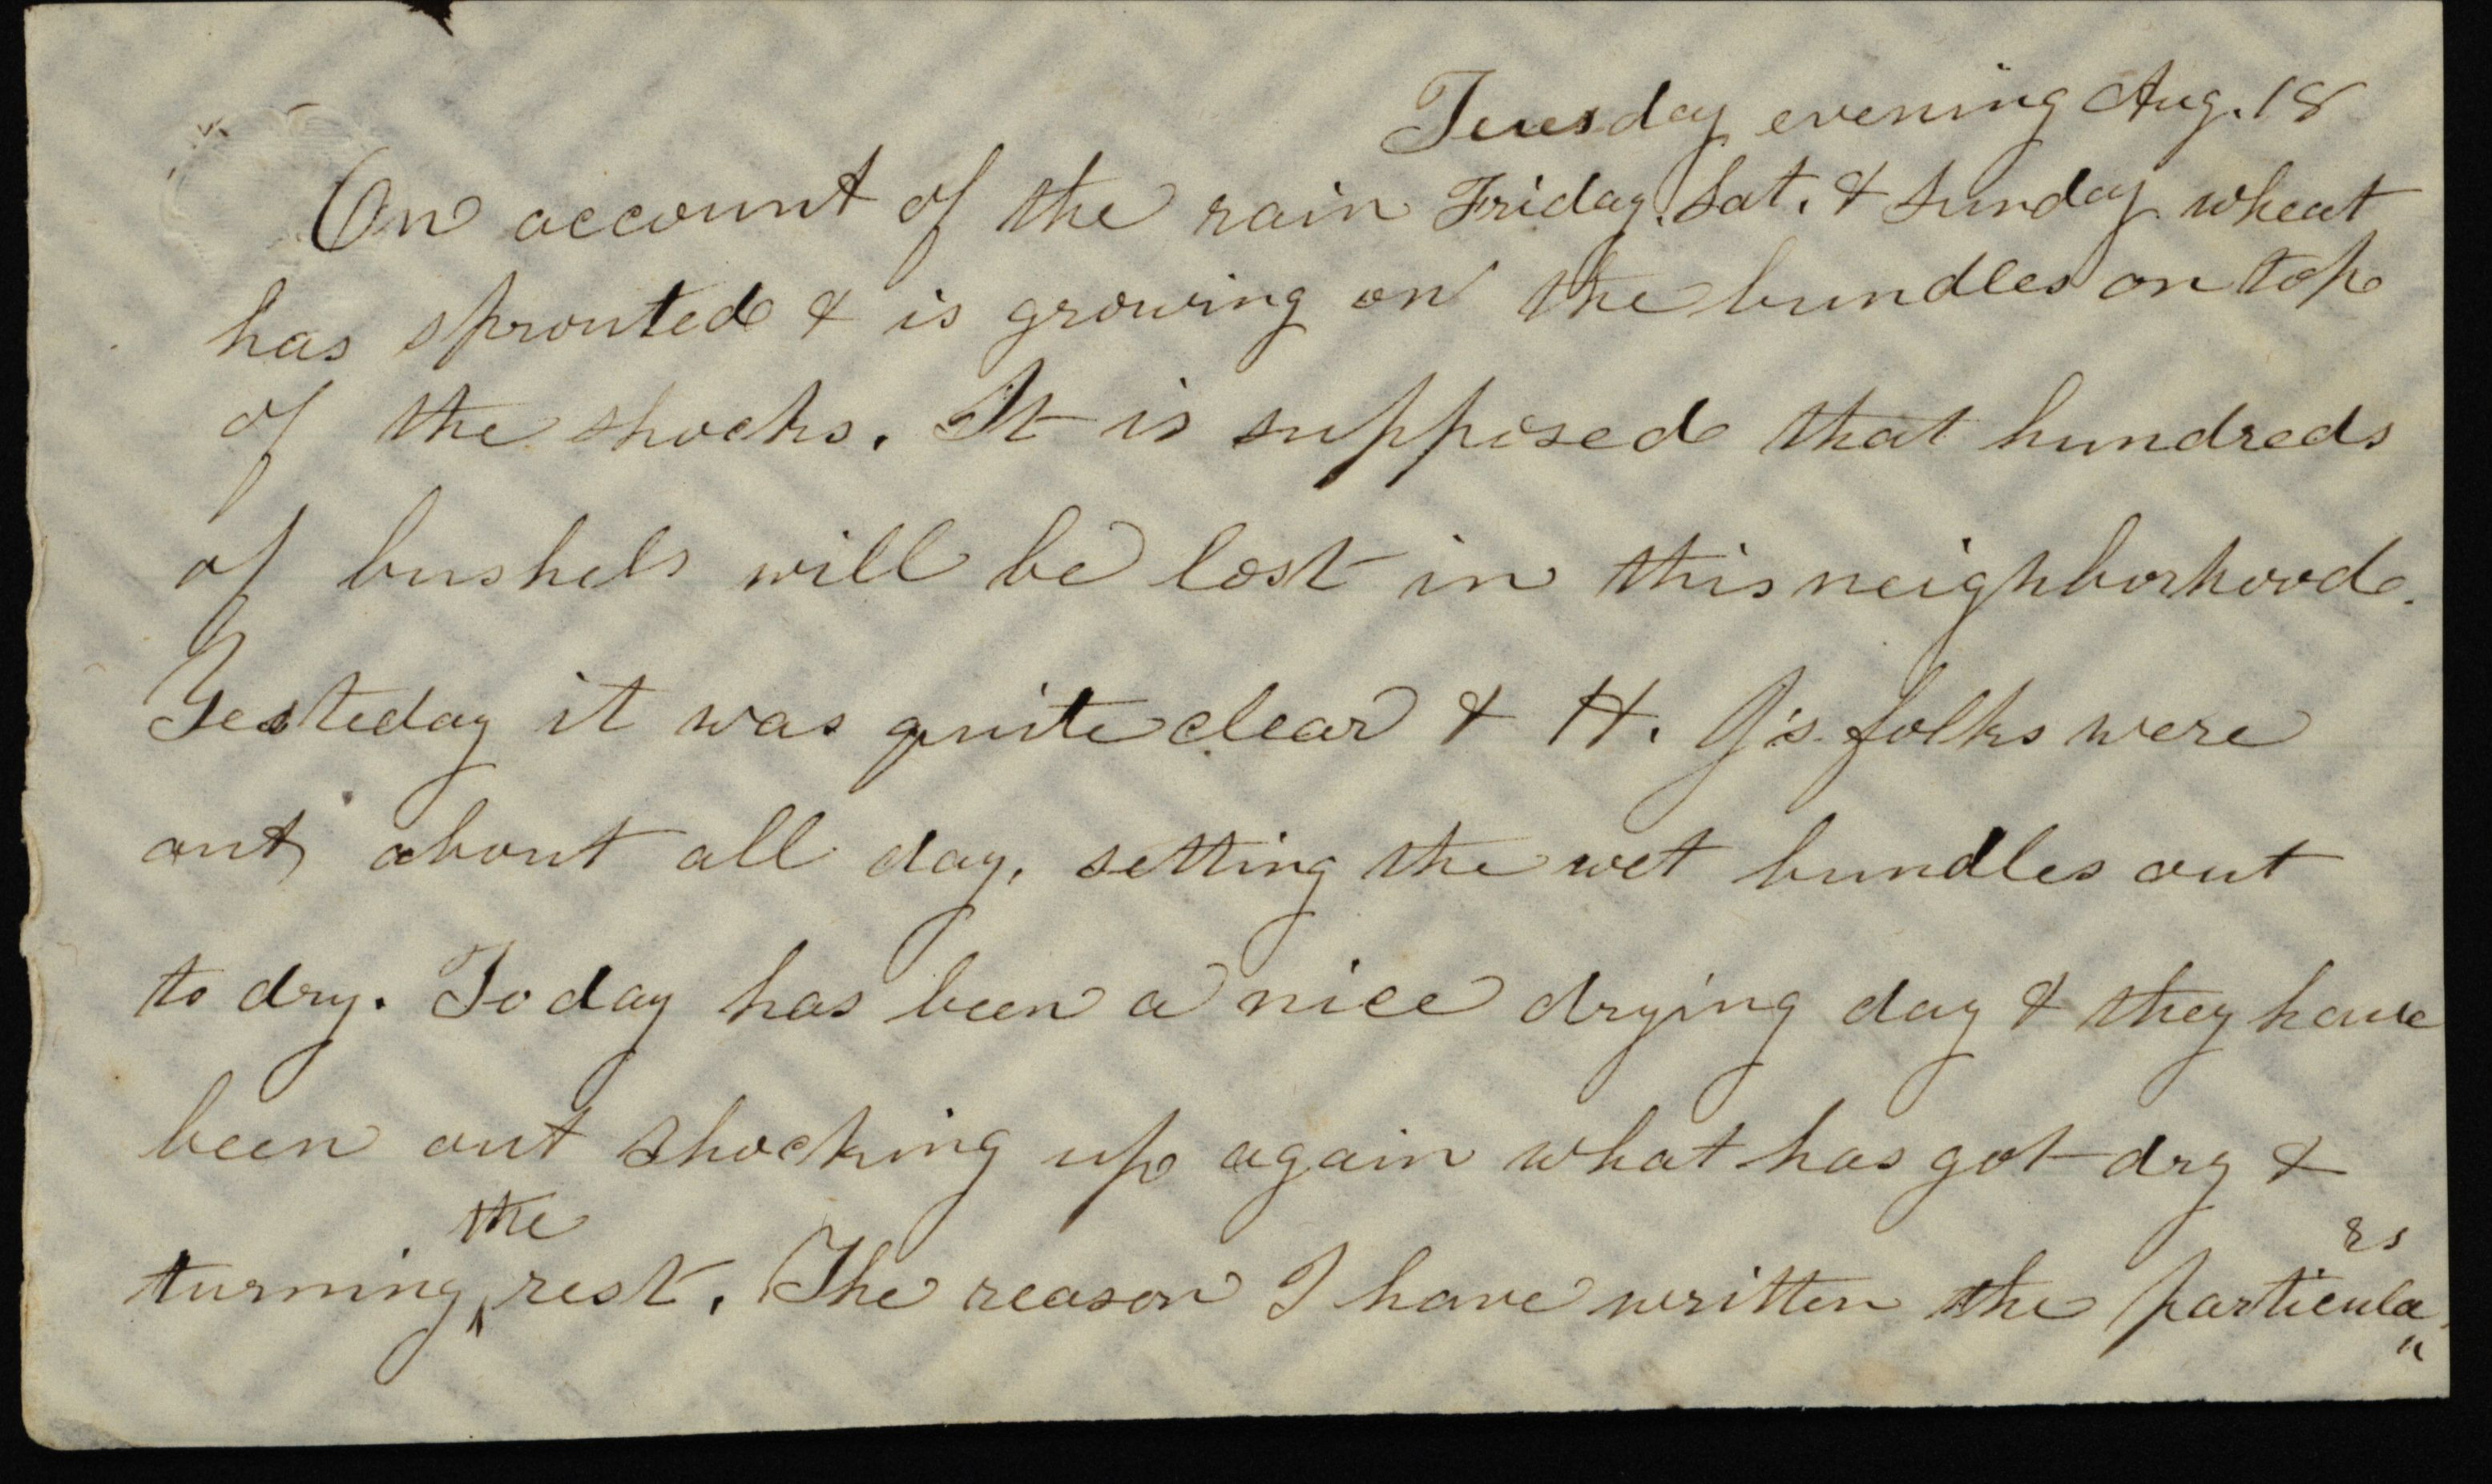 Tuesday evening Aug. 18
On account of the rain Friday, Sat. & Sunday wheat
has sprouted & is growing on the bundles on top
of the shocks. It is supposed that hundreds
of bushels will be lost in this neighborhood.
Yesteday it was quite clear & H. J's folks were
out about all day, setting the wet bundles out
to dry. To day has been a nice drying day & they have
been out shocking up again what has got dry &
the
turning ^ rest. The reason I have written the particula
rs
"